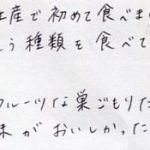 土産で初めて食べま
う種類を食べて
フルーツな巣ごもりた
味がおいしかった